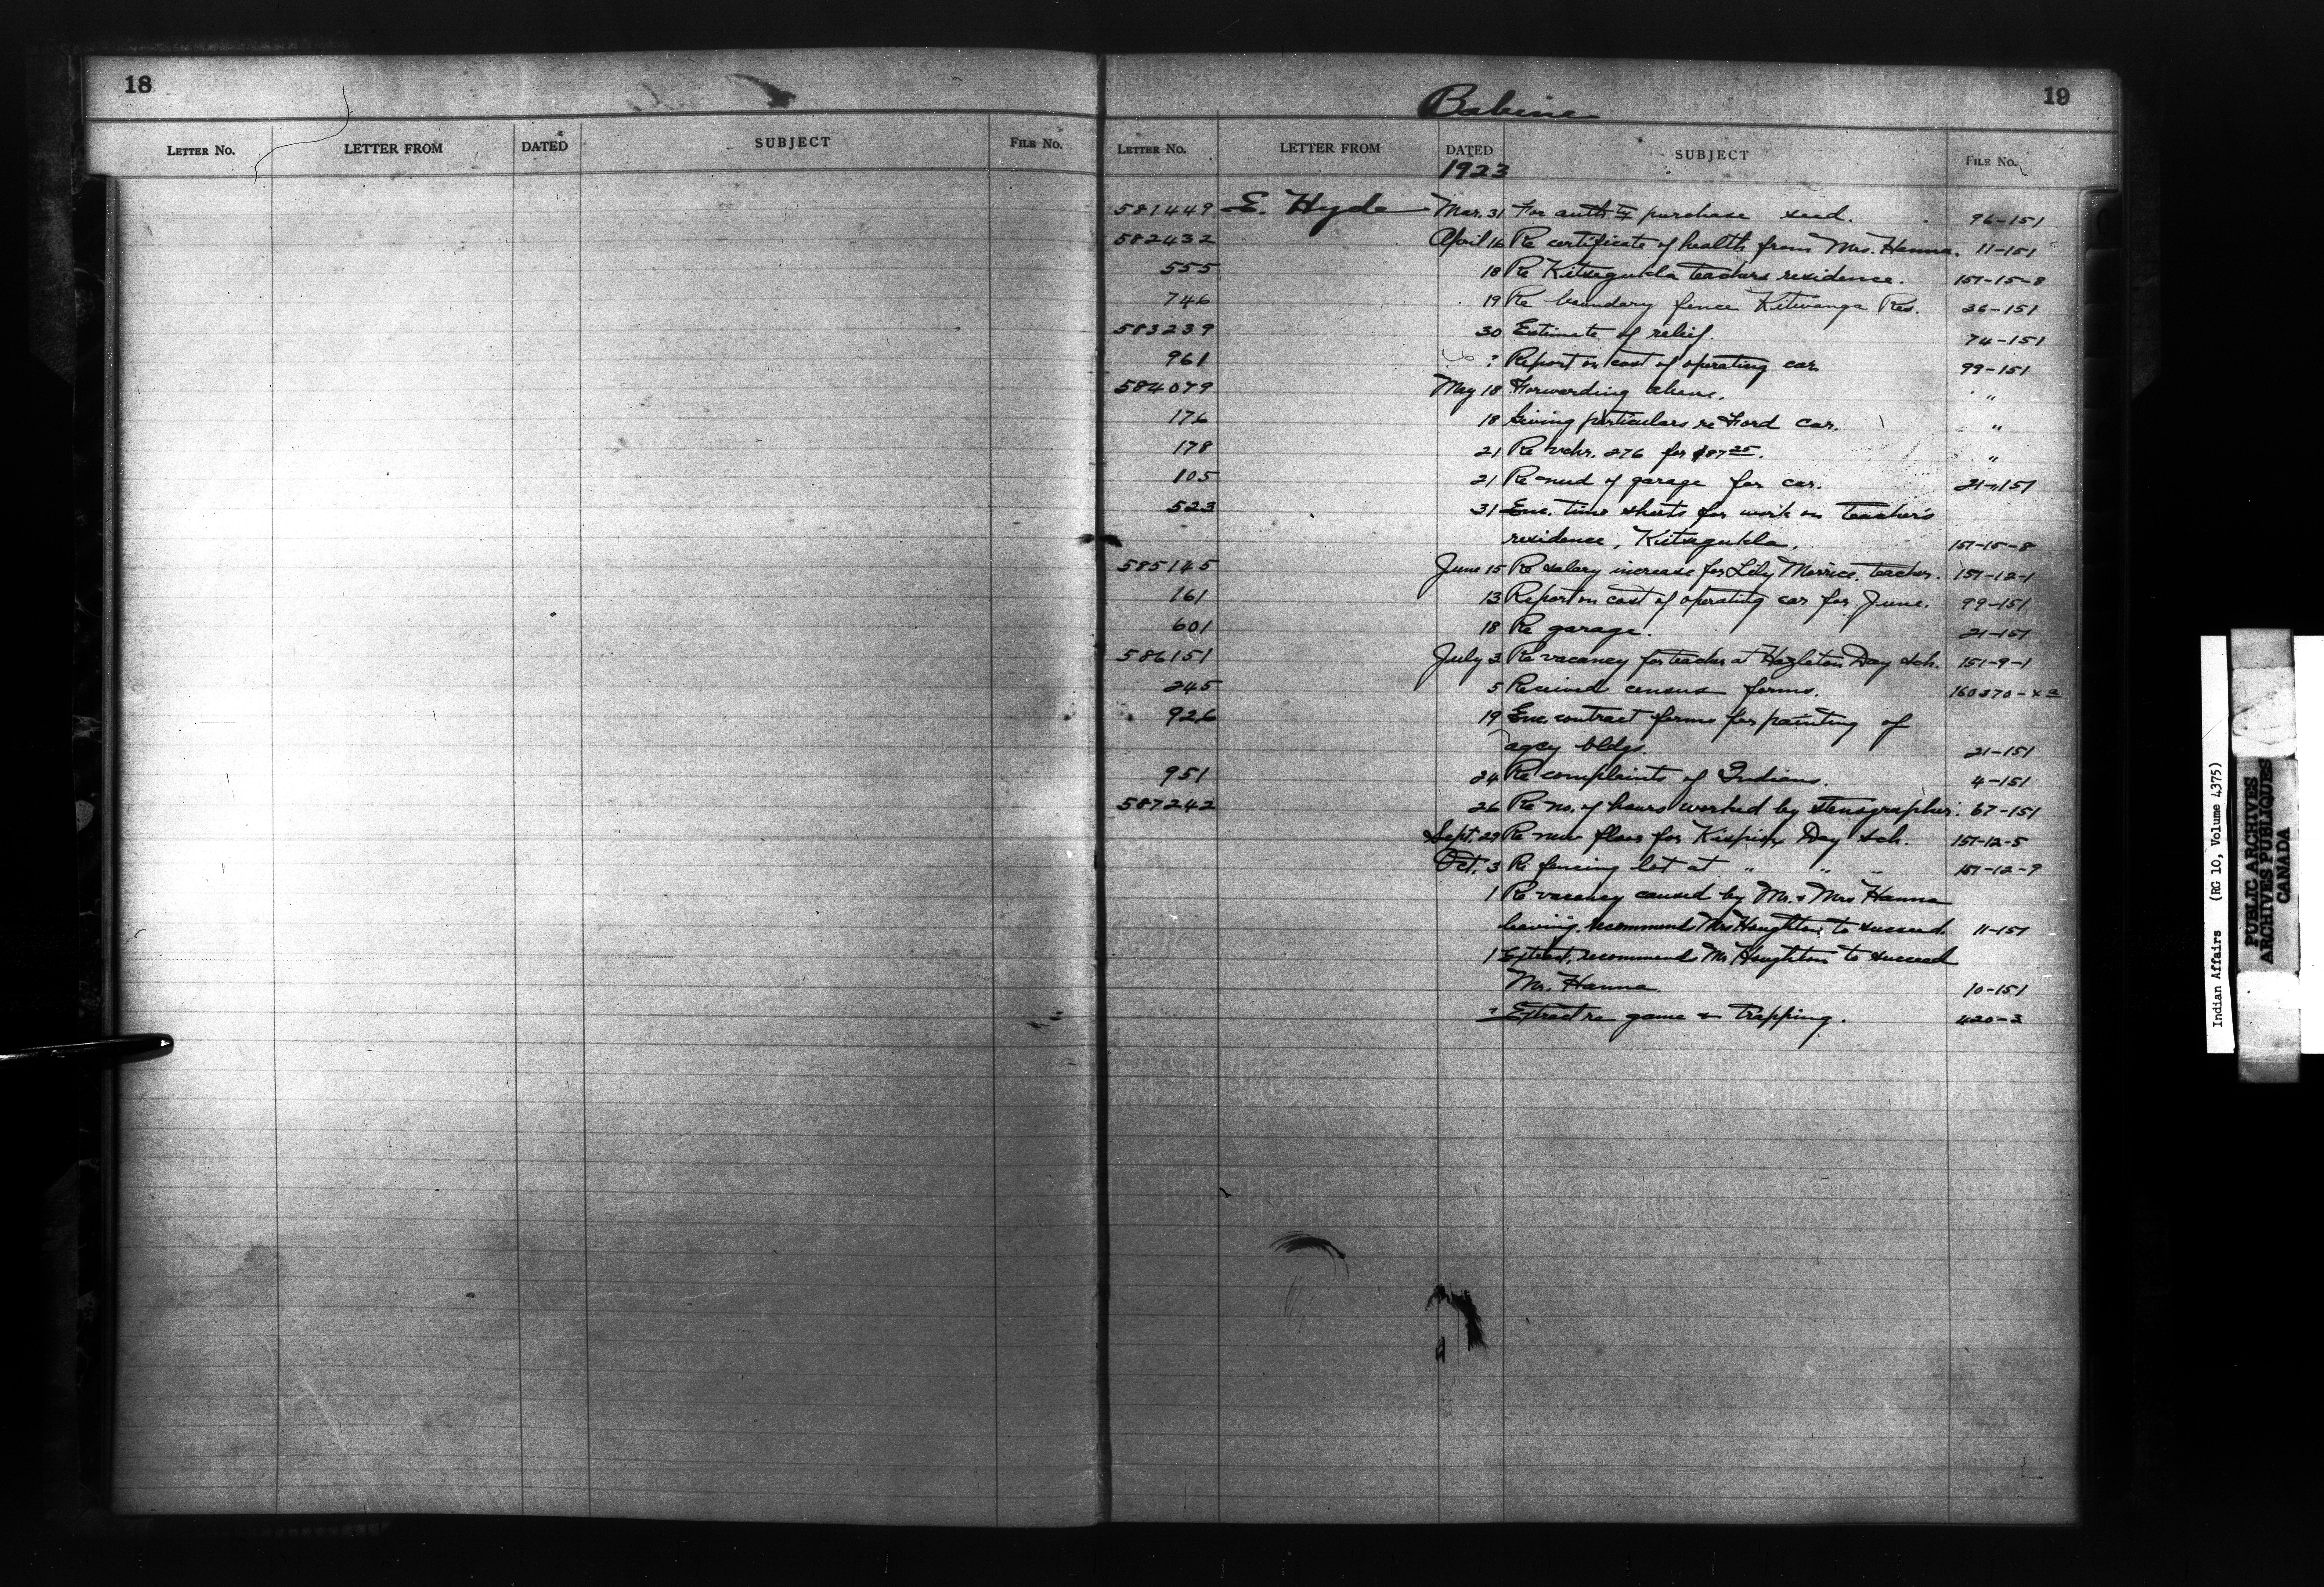 18
LETTER NO. LETTER FROM DATED SUBJECT FILE NO.
Babine
19
LETTER NO. LETTER FROM DATED SUBJECT FILE NO.
1923
581449 E. Hyde Mar. 31 For auth to purchase seed. 96-151
582432 April 16 Re certificate of health from Mrs. Hanna. 11-151
555 18 Re Kitsegukla teachers residence. 151-15-8
746 19 Re boundary fence Kitwanga Res. 36-151
583239 30 Estimate of relief. 74-151
961 ? Report on cost of operating car 99-151
584079 May 18 Forwarding above. "
176 18 Giving particulars re Ford car. "
178 21 Re vchr. 276 for $87 25. "
105 21 Re need of garage for car. 21-151
523 31 Enc. time sheets for work on teacher's
residence, Kitsegukla. 151-15-8
585145 June 15 Re salary increase for Lily Morrice, teacher. 151-12-1
161 13 Report on cost of operating car for June. 99-151
601 18 Re garage. 21-151
586151 July 3 Re vacancy for teacher at Hazleton Day sch. 151-9-1
245 5 Received census forms. 160370-
926 19 Enc. contract forms for painting of
agcy bldgs. 21-151
951 24 Re complaints of Indians. 4-151
587242 26 Re no. of hours worked by stenographer. 67-151
Sept. 29 Re new floor for Kispiox Day sch. 151-12-5
Oct. 3 Re fencing lot at " " " 151-12-9
1 Re vacancy caused by Mr. & Mrs Hanna
leaving, recommends Mrs Houghton to succeed 11-151
1 Extract, recommends Mr Houghton to succeed
Mr. Hanna. 10-151
? Extract re game & trapping. 420-3
Indian Affairs (RG 10, Volume 4375)
PUBLIC ARCHIVES
ARCHIVES PUBLIQUES
CANADA